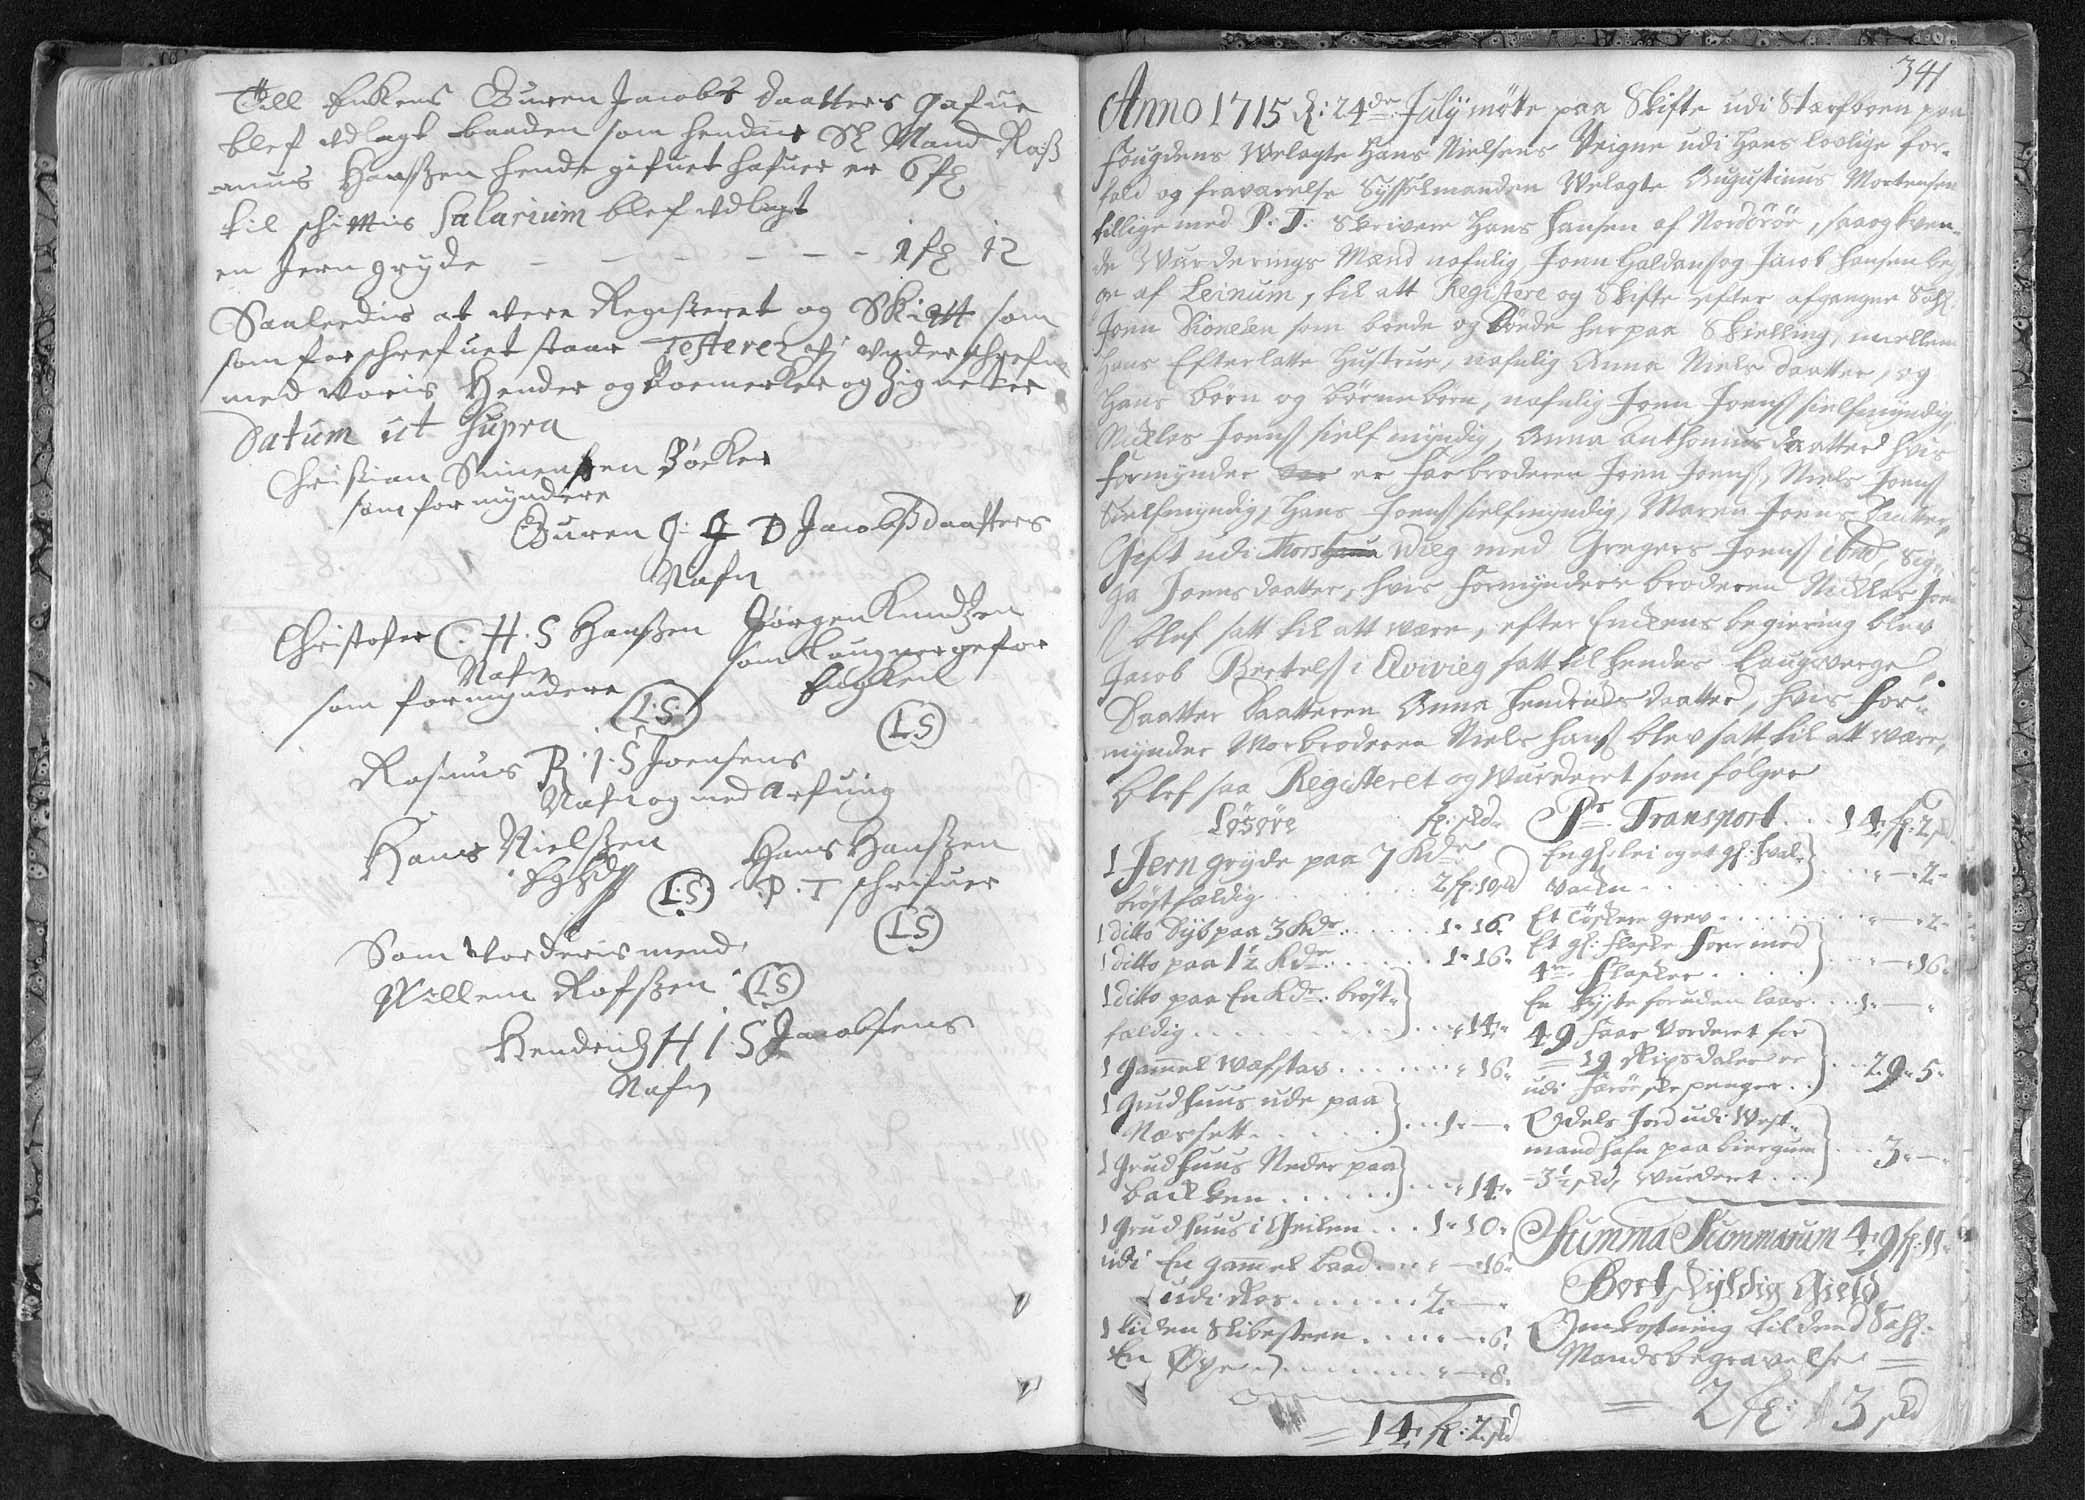 Till Enkens Guren Jacobs daatters gafue
blef vdlagt baaden som hendis Sl Mand Raß
mus Hanßen hende gifuet hafuer er 6 fl
til schiftis Salarium blef vdlagt
en Jern gryde - - - - - - - 1 fl 12
Saaledis at vere Registeret og Skift som
som for schrefuet staar Testerer vj vnderschrefne
med voris Hender og Boemerker og Zigneter
Datum ut Supra
Christian Simensen Böcker
som formyndere
Guren G: J D Jacobsdaatters
Nafn
Christofer C. H. S Hanßen Jörgen Knudzen
Nafn som laugverge for
som formyndere Encken
LS
LS
Rasmus R. J. S Joensens
Nafn og med Arfuing
Hans Nielßen Hans Hanßen
LS P. T schrifuer
LS
Som Vorderis mend
Willem Rafßen LS
Hendrich H I. S Jacobsens
Nafn
341
Anno 1715 d: 24de July möte paa Skifte udi Starfboen paa
fougdens Welagte Hans Nielsens Weigne udi hans lovlige for-
fald og fraværelse Sysselmanden Welagte Augustinus Mortensen
tillige med P: T: Skrivere Hans Hansen af Nordöröe, saa og tven-
de Wurderings Mænd nafnlig, Joen Haldans og Jacob Hansen beg-
ge af Leinum, til att Registere og Skifte efter afgangne Sahl.
Joen som boede og döede her paa Skielling, mellem
Hans Efterlatte Hustrue, nafnlig Anna Niels daatter, og
Hans börn og börnebörn, nafnlig Joen Joens sielfmyndig,
Nicklas Joens sielf myndig, Anna Anthonius daatter hvis
formynder er farbroderen Joen Joens, Niels Joens
Sielfmyndig, Hans Joens sielfmyndig, Maren Joens daatter,
Gift udi Wieg med Gregers Joens ibid, Sig-
ga Joensdaatter, hvis formynder broderen Nicklas Joens
blef satt til att være, efter Enckens begiering blev
Jacob Bertels i Qvivieg satt til hendes Laugverge,
Daatter daatteren Anna Hendrichs daatter, hvis for-
mynder Morbroderen Niels Hans blev satt til att være,
blef saa Registeret og Wurderet som følger
Lösöre fl: skd
1 Jern gryde paa 7 Kdr
bröstfældig . . . . . 2 fl: 10 skd
1 ditto dyb paa 3 Kdr . . . . . 1 " 16 "
1 ditto paa 1½ Kdr . . . . . 1 " 16 "
1 ditto paa En Kdr: bröst-
faldig . . . . . " 14 "
1 gammel Wæfstar . . . . . " 16 "
1 Grudhuus ude paa
Næssett . . . . . 1 " — "
1 Grudhuus Neder paa
backken . . . . . " 14 "
1 Grudhuus i Geilen . . . 1 " 10 "
udi En gammel baad . . . " — 16 "
udi Ros . . . . . 2 " — "
1 liden Slibesteen . . . . " — 6 "
En Öxe . . . . . " — 8 "
= 14 fl: 2 skd
Pr Transport . . . 14 fl: 2 skd
En gl: lei og et gl: hval-
vaaben . . . . . " — 2 "
Et Töskere grev . . . . . " — 2 "
Et gl: flaske foer med
4re flasker . . . . . " — 16 "
En kiste foruden laas . . . 1 " — "
49 faar Vorderet for
= 19 Ripsdaler er
udi færöeske penger . . . 29 " 5 "
Odels Jord udi Vest-
mandhafn paa biergum
= 3½ skd, Wurderet . . . 3 " — "
Summa Summarum 49 fl: 11 "
Bort Skyldig Gield
Omkostning til dend Sahl.
Mands begravelse =
= 2 fl: 13 skd